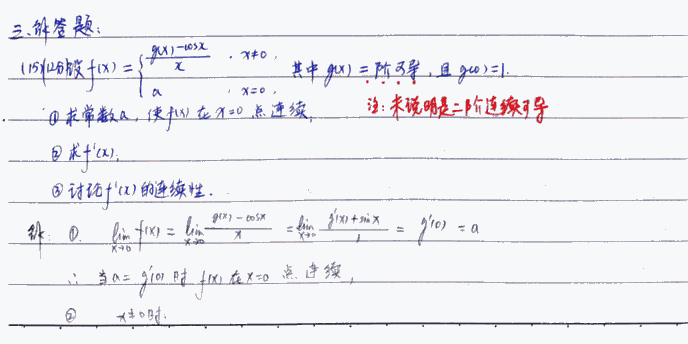 三、解答题:
(15)(12分)设 f(x) = { (g(x)-cosx)/x , x≠0, a , x=0, 其中 g(x) 二阶可导, 且 g(0)=1.
① 求常数a, 使f(x)在x=0点连续,
注: 未说明是二阶连续可导
② 求f'(x).
③ 讨论f'(x)的连续性.
解: ①. lim_{x→0} f(x) = lim_{x→0} (g(x)-cosx)/x = lim_{x→0} (g'(x)+sinx)/1 = g'(0) = a
∴ 当a=g'(0)时 f(x)在x=0点连续,
② x≠0时.